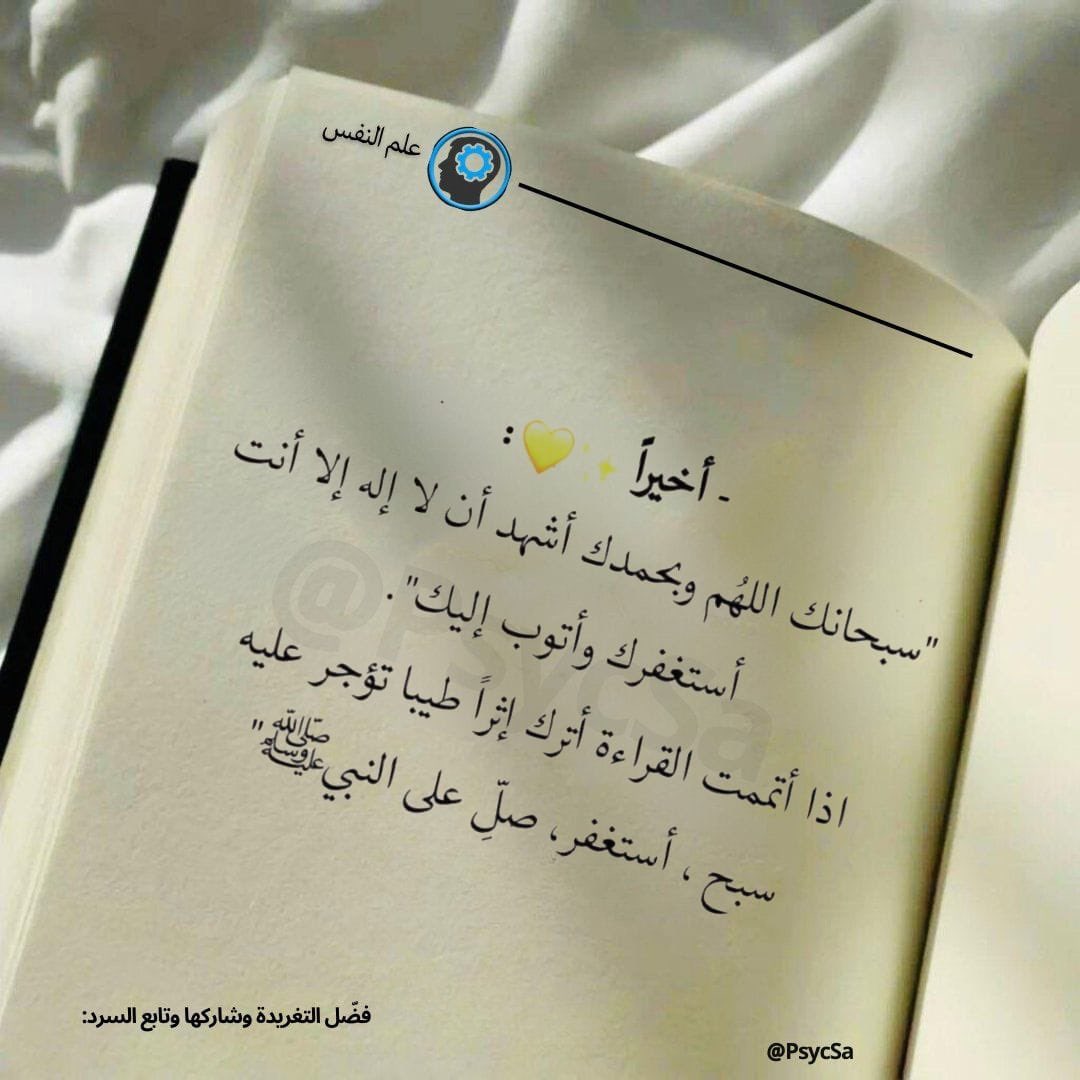 علم النفس
- أخيراً ✨💛 :
"سبحانك اللهُم وبحمدك أشهد أن لا إله إلا أنت
أستغفرك وأتوب إليك".
اذا أتممت القراءة أترك إثراً طيبا تؤجر عليه
سبح ، أستغفر، صلِّ على النبي ﷺ"
@PsycSa
فضّل التغريدة وشاركها وتابع السرد:
@PsycSa